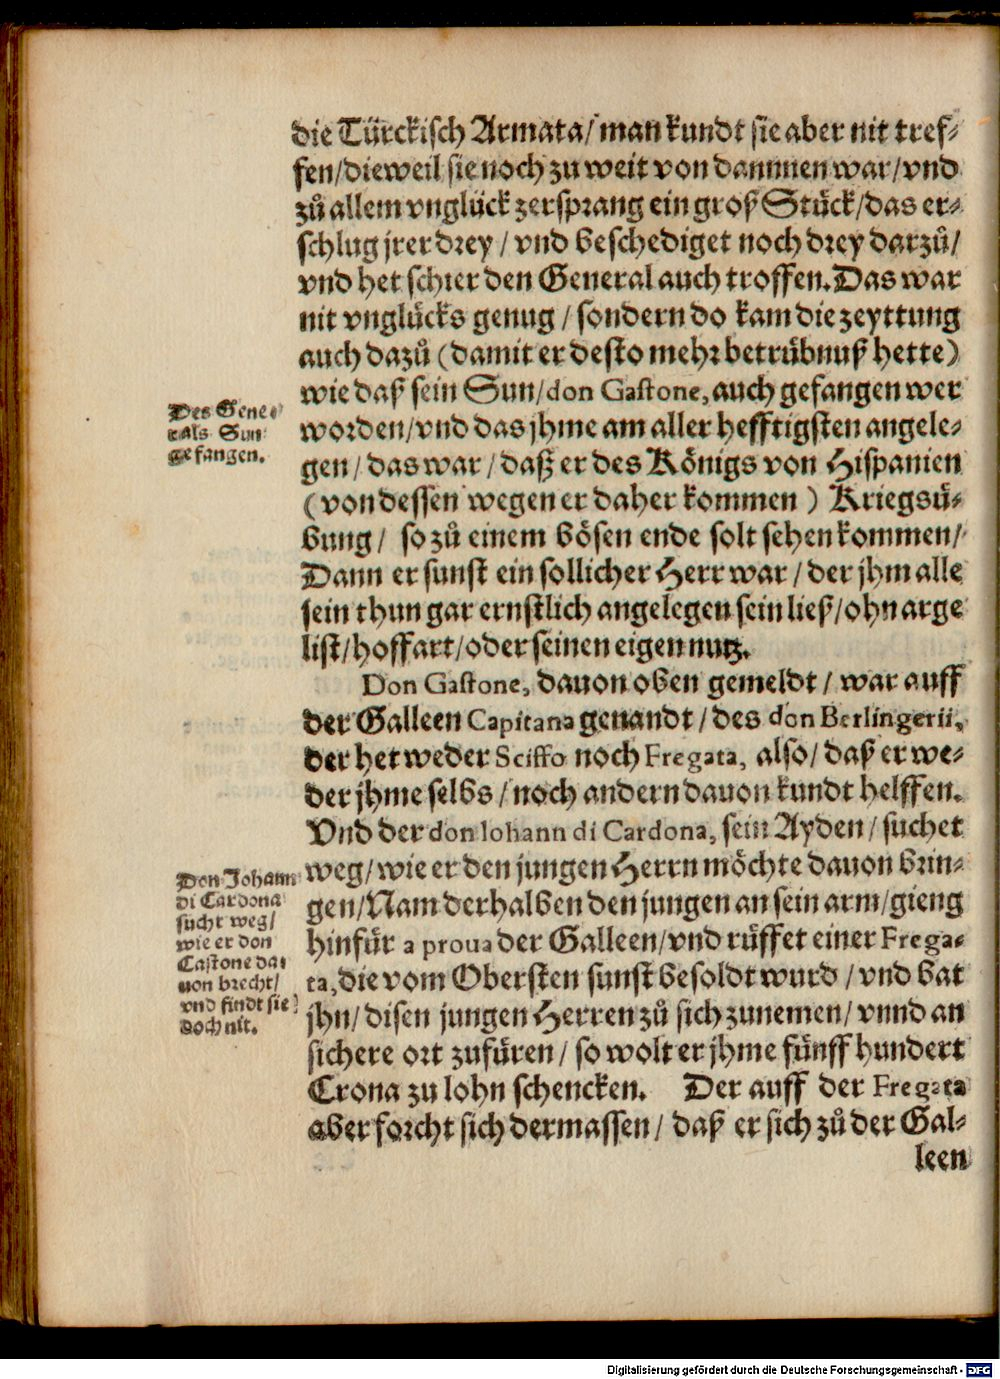 die Türckisch Armata/ man kundt sie aber nit tref-
fen/ dieweil sie noch zu weit von dannnen war/ vnd
zů allem vnglück zersprang ein groß Stück/ das er-
schlug jrer drey / vnd beschediget noch drey darzů/
vnd het schier den General auch troffen. Das war
nit vnglücks genug / sondern do kam die zeyttung
auch dazů (damit er desto mehr betrübnuß hette)
wie daß sein Sun/ don Gastone, auch gefangen wer
worden/ vnd das jhme am aller hefftigsten angele-
gen/ das war/ daß er des Königs von Hispanien
(von dessen wegen er daher kommen) Kriegsü-
bung/ so zů einem bösen ende solt sehen kommen/
Dann er sunst ein sollicher Herr war/ der jhm alle
sein thun gar ernstlich angelegen sein ließ/ ohn arge
list/ hoffart/ oder seinen eigen nutz.
Des Gene-
rals Sun
gefangen.
Don Gastone, dauon oben gemeldt/ war auff
der Galleen Capitana genandt/ des don Berlingerii,
der het weder Sciffo noch Fregata, also/ daß er we-
der jhme selbs/ noch andern dauon kundt helffen.
Vnd der don Iohann di Cardona, sein Ayden/ suchet
weg/ wie er den jungen Herrn möchte dauon brin-
gen/ Nam derhalben den jungen an sein arm/ gieng
hinfür a proua der Galleen/ vnd rüffet einer Frega-
ta, die vom Obersten sunst besoldt wurd / vnd bat
jhn/ disen jungen Herren zů sich zunemen/ vnnd an
sichere ort zufüren/ so wolt er jhme fünff hundert
Crona zu lohn schencken. Der auff der Fregata
aber forcht sich dermassen/ daß er sich zů der Gal-
leen
Don Johann
di Cardona
sucht weg/
wie er don
Castone da-
uon brecht/
vnd findt sie
doch nit.
Digitalisierung gefördert durch die Deutsche Forschungsgemeinschaft - DFG